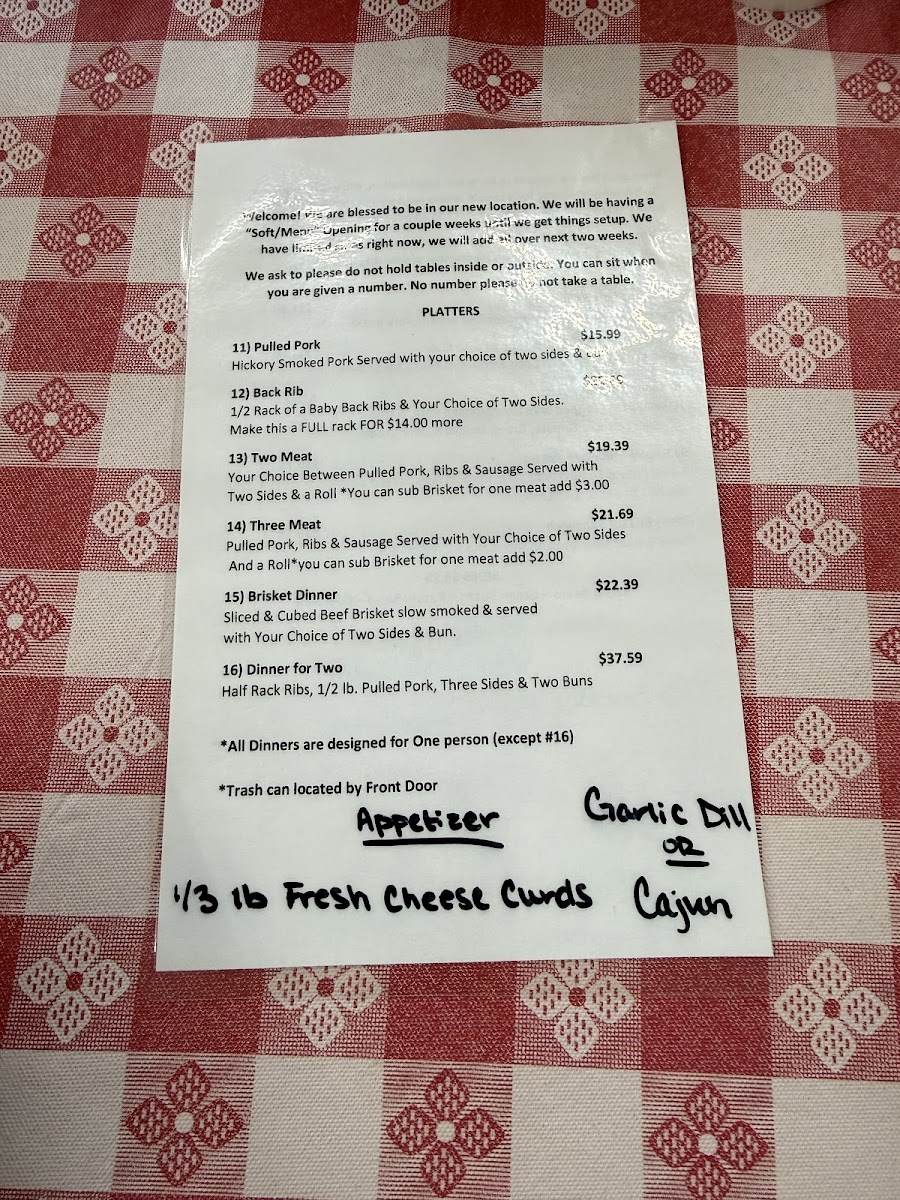 Welcome! We are blessed to be in our new location. We will be having a
"Soft/Menu" Opening for a couple weeks until we get things setup. We
have limited right now, we will add all over next two weeks.
We ask to please do not hold tables inside or outside. You can sit when
you are given a number. No number please do not take a table.
PLATTERS
11) Pulled Pork $15.99
Hickory Smoked Pork Served with your choice of two sides &
12) Back Rib
1/2 Rack of a Baby Back Ribs & Your Choice of Two Sides.
Make this a FULL rack FOR $14.00 more
13) Two Meat $19.39
Your Choice Between Pulled Pork, Ribs & Sausage Served with
Two Sides & a Roll *You can sub Brisket for one meat add $3.00
14) Three Meat $21.69
Pulled Pork, Ribs & Sausage Served with Your Choice of Two Sides
And a Roll*you can sub Brisket for one meat add $2.00
15) Brisket Dinner $22.39
Sliced & Cubed Beef Brisket slow smoked & served
with Your Choice of Two Sides & Bun.
16) Dinner for Two $37.59
Half Rack Ribs, 1/2 lb. Pulled Pork, Three Sides & Two Buns
*All Dinners are designed for One person (except #16)
*Trash can located by Front Door
Appetizer
1/3 lb Fresh Cheese Curds
Garlic Dill
OR
Cajun